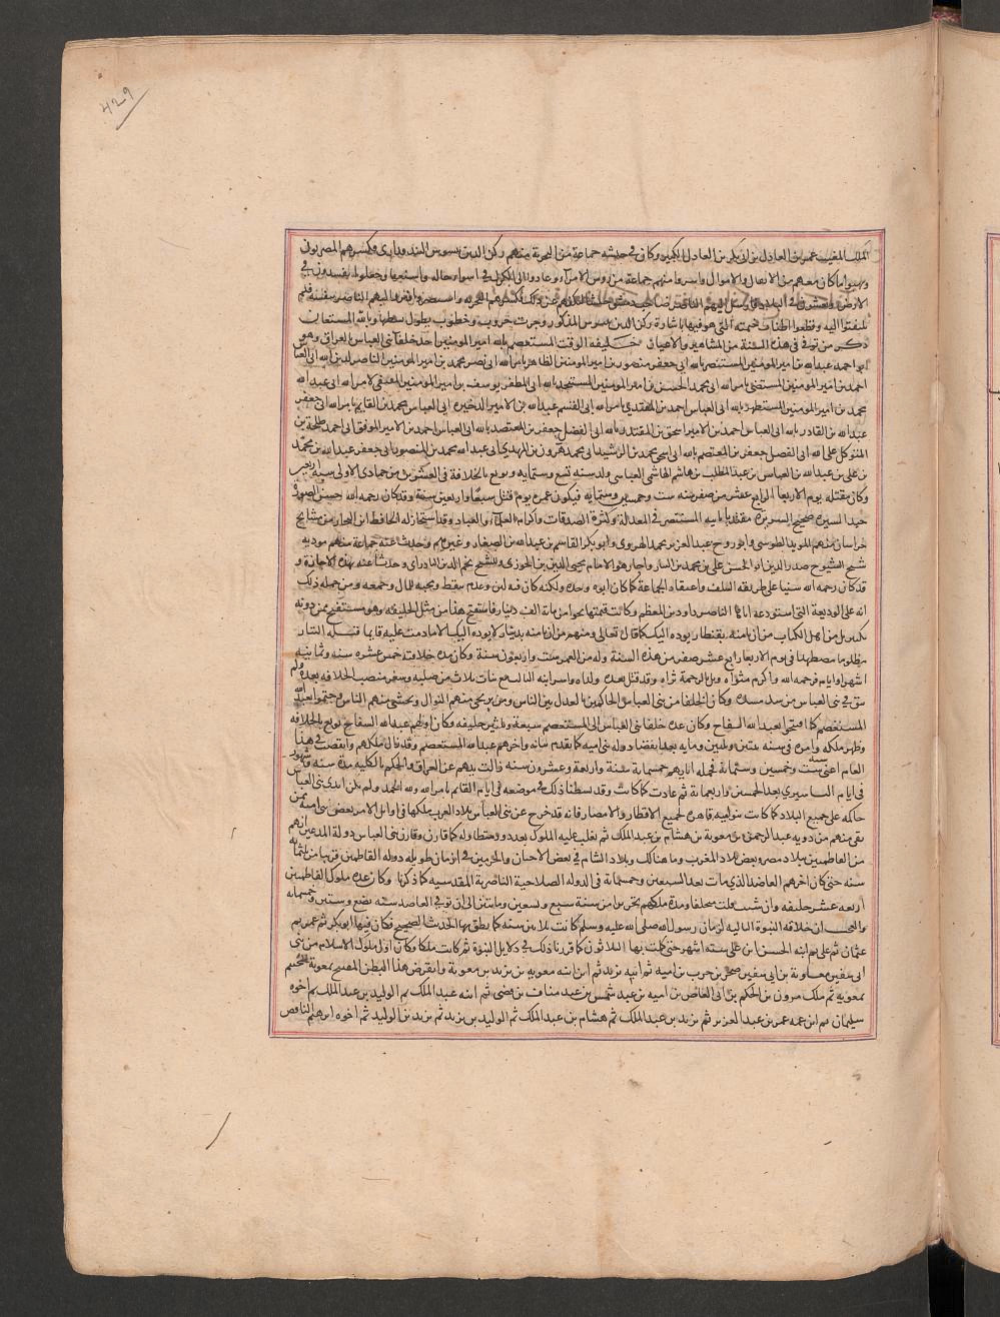 ٤٢٩
الملك المغيث عمر بن العادل بن ابى بكر بن العادل الكبير وكان فى جيشه جماعة من البحرية منهم ركن الدين بيبرس البندقدارى فكسرهم المصريون
ونهبوا ما كان معهم من الاثقال والاموال واسروا منهم جماعة من روس الامرآء وعادوا الى الكرك فى اسوا حاله واشنعها وجعلوا يفسدون فى
الارض ويعيثون فى البلاد
اليه وقطعوا اطناب خيمته التى هو فيها باشارة ركن الدين بيبرس المذكور وجرت حروب وخطوب يطول بسطها وبالله المستعان
ذكر من توفى فى هذه السنة من المشاهير والاعيان خليفة الوقت المستعصم بالله امير المومنين اخر خلفآء بنى العباس بالعراق وهو
ابو احمد عبدالله بن امير المومنين المستنصر بالله ابى جعفر منصور بن امير المومنين الظاهر بامر الله ابى نصر محمد بن امير المومنين الناصر لدين الله ابى العباس
احمد بن امير المومنين المستضى بامر الله ابى محمد الحسن بن امير المومنين المستنجد بالله ابى المظفر يوسف بن امير المومنين المقتفى لامر الله ابى عبد الله
محمد بن امير المومنين المستظهر بالله ابى العباس احمد بن المقتدى بامر الله ابى القسم عبدالله بن الامير الذخيره ابى العباس محمد بن القايم بامر الله ابى جعفر
عبد الله بن القادر بالله ابى العباس احمد بن الامير اسحق بن المقتدر بالله ابى الفضل جعفر بن المعتضد بالله ابى العباس احمد بن الامير الموفق ابى احمد طلحة بن
المتوكل على الله ابى الفضل جعفر بن المعتصم بالله ابى اسحق محمد بن الرشيد ابى محمد هرون بن المهدى ابى عبد الله محمد بن المنصور ابى جعفر عبد الله بن محمد
بن على بن عبد الله بن العباس بن عبد المطلب بن هاشم الهاشمى العباسى ولد سنه تسع وستمايه وبويع بالخلافة فى العشرين من جمادى الاولى سنه اربعين
وكان مقتله يوم الاربعا الرابع عشر من صفر سنه ست وخمسين وستمايه فيكون عمره يوم قتل سبعا واربعين سنة وقد كان رحمه الله حسن الصوره
جيد السيرة صحيح السريرة مقتديا بابيه المستنصر فى المعدلة وكثرة الصدقات واكرام العلمآء والعباد وقد استجاز له الحافظ ابن النجار من مشايخ
خراسان منهم المويد الطوسى وابو روح عبد العزيز بن محمد الهروى وابو بكر القاسم بن عبد الله بن الصفار وغيرهم وحدث عنه جماعة منهم مودبه
شيخ الشيوخ صدر الدين ابو الحسن على بن محمد بن النيار واجاز هو الامام محيى الدين بن الجوزى وللشيخ نجم الدين البادراى وحدثا عنه بهذه الاجازة و
قد كان رحمه الله سنيا على طريقة السلف واعتقاد الجماعة كما كان ابوه وجده ولكنه كان فيه لين وعدم تيقظ ومحبه للمال وجمعه ومن جملة ذلك
انه غل الوديعة التى استودعه اياها الناصر داود بن المعظم وكانت قيمتها نحوا من ماية الف دينار فاستقبح هذا من مثل الخليفه وهو مستقبح ممن دونه
بكثير بل من اهل الكتاب من ان تامنه بقنطار يوده اليك كما قال تعالى ومنهم من ان تامنه بدينار لا يوده اليك الا ما دمت عليه قايما قتله التتار
مظلوما مضطهدا فى يوم الاربعا رابع عشر صفر من هذه السنة وله من العمر ست واربعون سنة وكان مدة خلافته خمس عشره سنه وثمانيه
اشهر واياما فرحمه الله واكرم مثواه وبل بالرحمة ثراه وقد قتل بعده ولداه واسر ابنه الثالث مع بنات ثلاث من صلبه وشغر منصب الخلافه بعده ولم
يبق فى بنى العباس من سد مسده وكان اخر الخلفا من بنى العباس الحاكمين بالعدل بين الناس ومن يرتجى منهم النوال ويخشى منهم الباس وختموا بعبد الله
المستعصم كما افتتحوا بعبد الله السفاح وكان عدة خلفا بنى العباس الى المستعصم سبعة وثلثين خليفه وكان اولهم عبد الله السفاح بويع بالخلافه
وظهر ملكه وامره فى سنه ثنتين وثلثين ومايه بعد انقضا دوله بنى اميه كما تقدم بيانه واخرهم عبد الله المستعصم وقد زال ملكهم وانقضت فى هذا
العام اعنى سنه ست وخمسين وستمايه فجمله ايامهم خمسمايه سنة واربعة وعشرون سنه وزالت يدهم عن العراق والحكم بالكليه مدة سنه وشهور
فى ايام البساسيرى بعد الخمسين واربعماية ثم عادت كما كانت وقد بسطنا ذلك فى موضعه فى ايام القائم بامر الله ولله الحمد ولم تكن ايدى بنى العباس
حاكمه على جميع البلاد كما كانت بنو اميه قاهره لجميع الاقطار والامصار فانه قد خرج عن بنى العباس بلاد المغرب ملكها فى اوائل الامر بعض بنى اميه ممن
بقى منهم من ذويه عبد الرحمن بن معوية بن هشام بن عبد الملك ثم تغلب عليه الملوك بعد دهر متطاوله كما قارن وقارن بنى العباس دولة المدعين انهم
من الفاطميين ببلاد مصر وبعض بلاد المغرب وما هنالك وبلاد الشام فى بعض الاحيان والحرمين فى ازمان طويله دولة الفاطمين قريبا من ثلثماية
سنه حتى كان اخرهم العاضد الذى مات بعد الستين وخمسماية فى الدولة الصلاحية الناصرية المقدسيه كما ذكرنا وكان عدة ملوك الفاطميين
اربعه عشر خليفه وان شيت قلت متخلفا ومدة ملكهم تحريرا من سنة سبع وتسعين ومايتين الى ان توفى العاضد سنة بضع وستين وخمسمايه
والعجب ان خلافه النبوة التاليه لزمان رسول الله صلى الله عليه وسلم كانت ثلاثين سنه كما نطق بها الحديث الصحيح فكان فيها ابو بكر ثم عمر ثم
عثمان ثم على ثم ابنه الحسن بن على سته اشهر حتى كملت بها الثلاثون كما قررنا ذلك فى دلايل النبوة ثم كانت ملكا وكان اول ملوك الاسلام من بنى
ابى سفين معاوية بن ابى سفين صخر بن حرب بن اميه ثم ابنه يزيد ثم ابن ابنه معويه بن يزيد بن معوية وانقرض هذا البطن المفتتح بمعوية المختتم
بمعويه ثم ملك مرون بن الحكم بن ابى العاص بن اميه بن عبد شمس بن عبد مناف بن قصى ثم ابنه عبد الملك ثم الوليد بن عبد الملك ثم اخوه
سليمان ثم ابن عمه عمر بن عبد العزيز ثم يزيد بن عبد الملك ثم هشام بن عبد الملك ثم الوليد بن يزيد ثم يزيد بن الوليد ثم اخوه ابرهيم الناقص